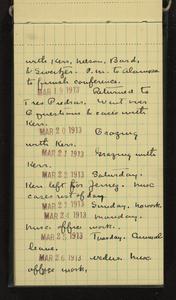 with Kerr, Nelson, Bard,
& Sweitzer. P.m. to Alamosa
to finish conference.
MAR 19 1913 Returned to
Tres Piedras. Went over
G questions & cases with
Kerr.
MAR 20 1913 Grazing
with Kerr.
MAR 21 1913 Grazing with
Kerr.
MAR 22 1913 Saturday.
Kerr left for Jersey. Misc
cases rest of day.
MAR 23 1913 Sunday, no work.
MAR 24 1913 Monday.
Misc. office work.
MAR 25 1913 Tuesday. Annual
leave.
MAR 26 1913 Misc
office work,